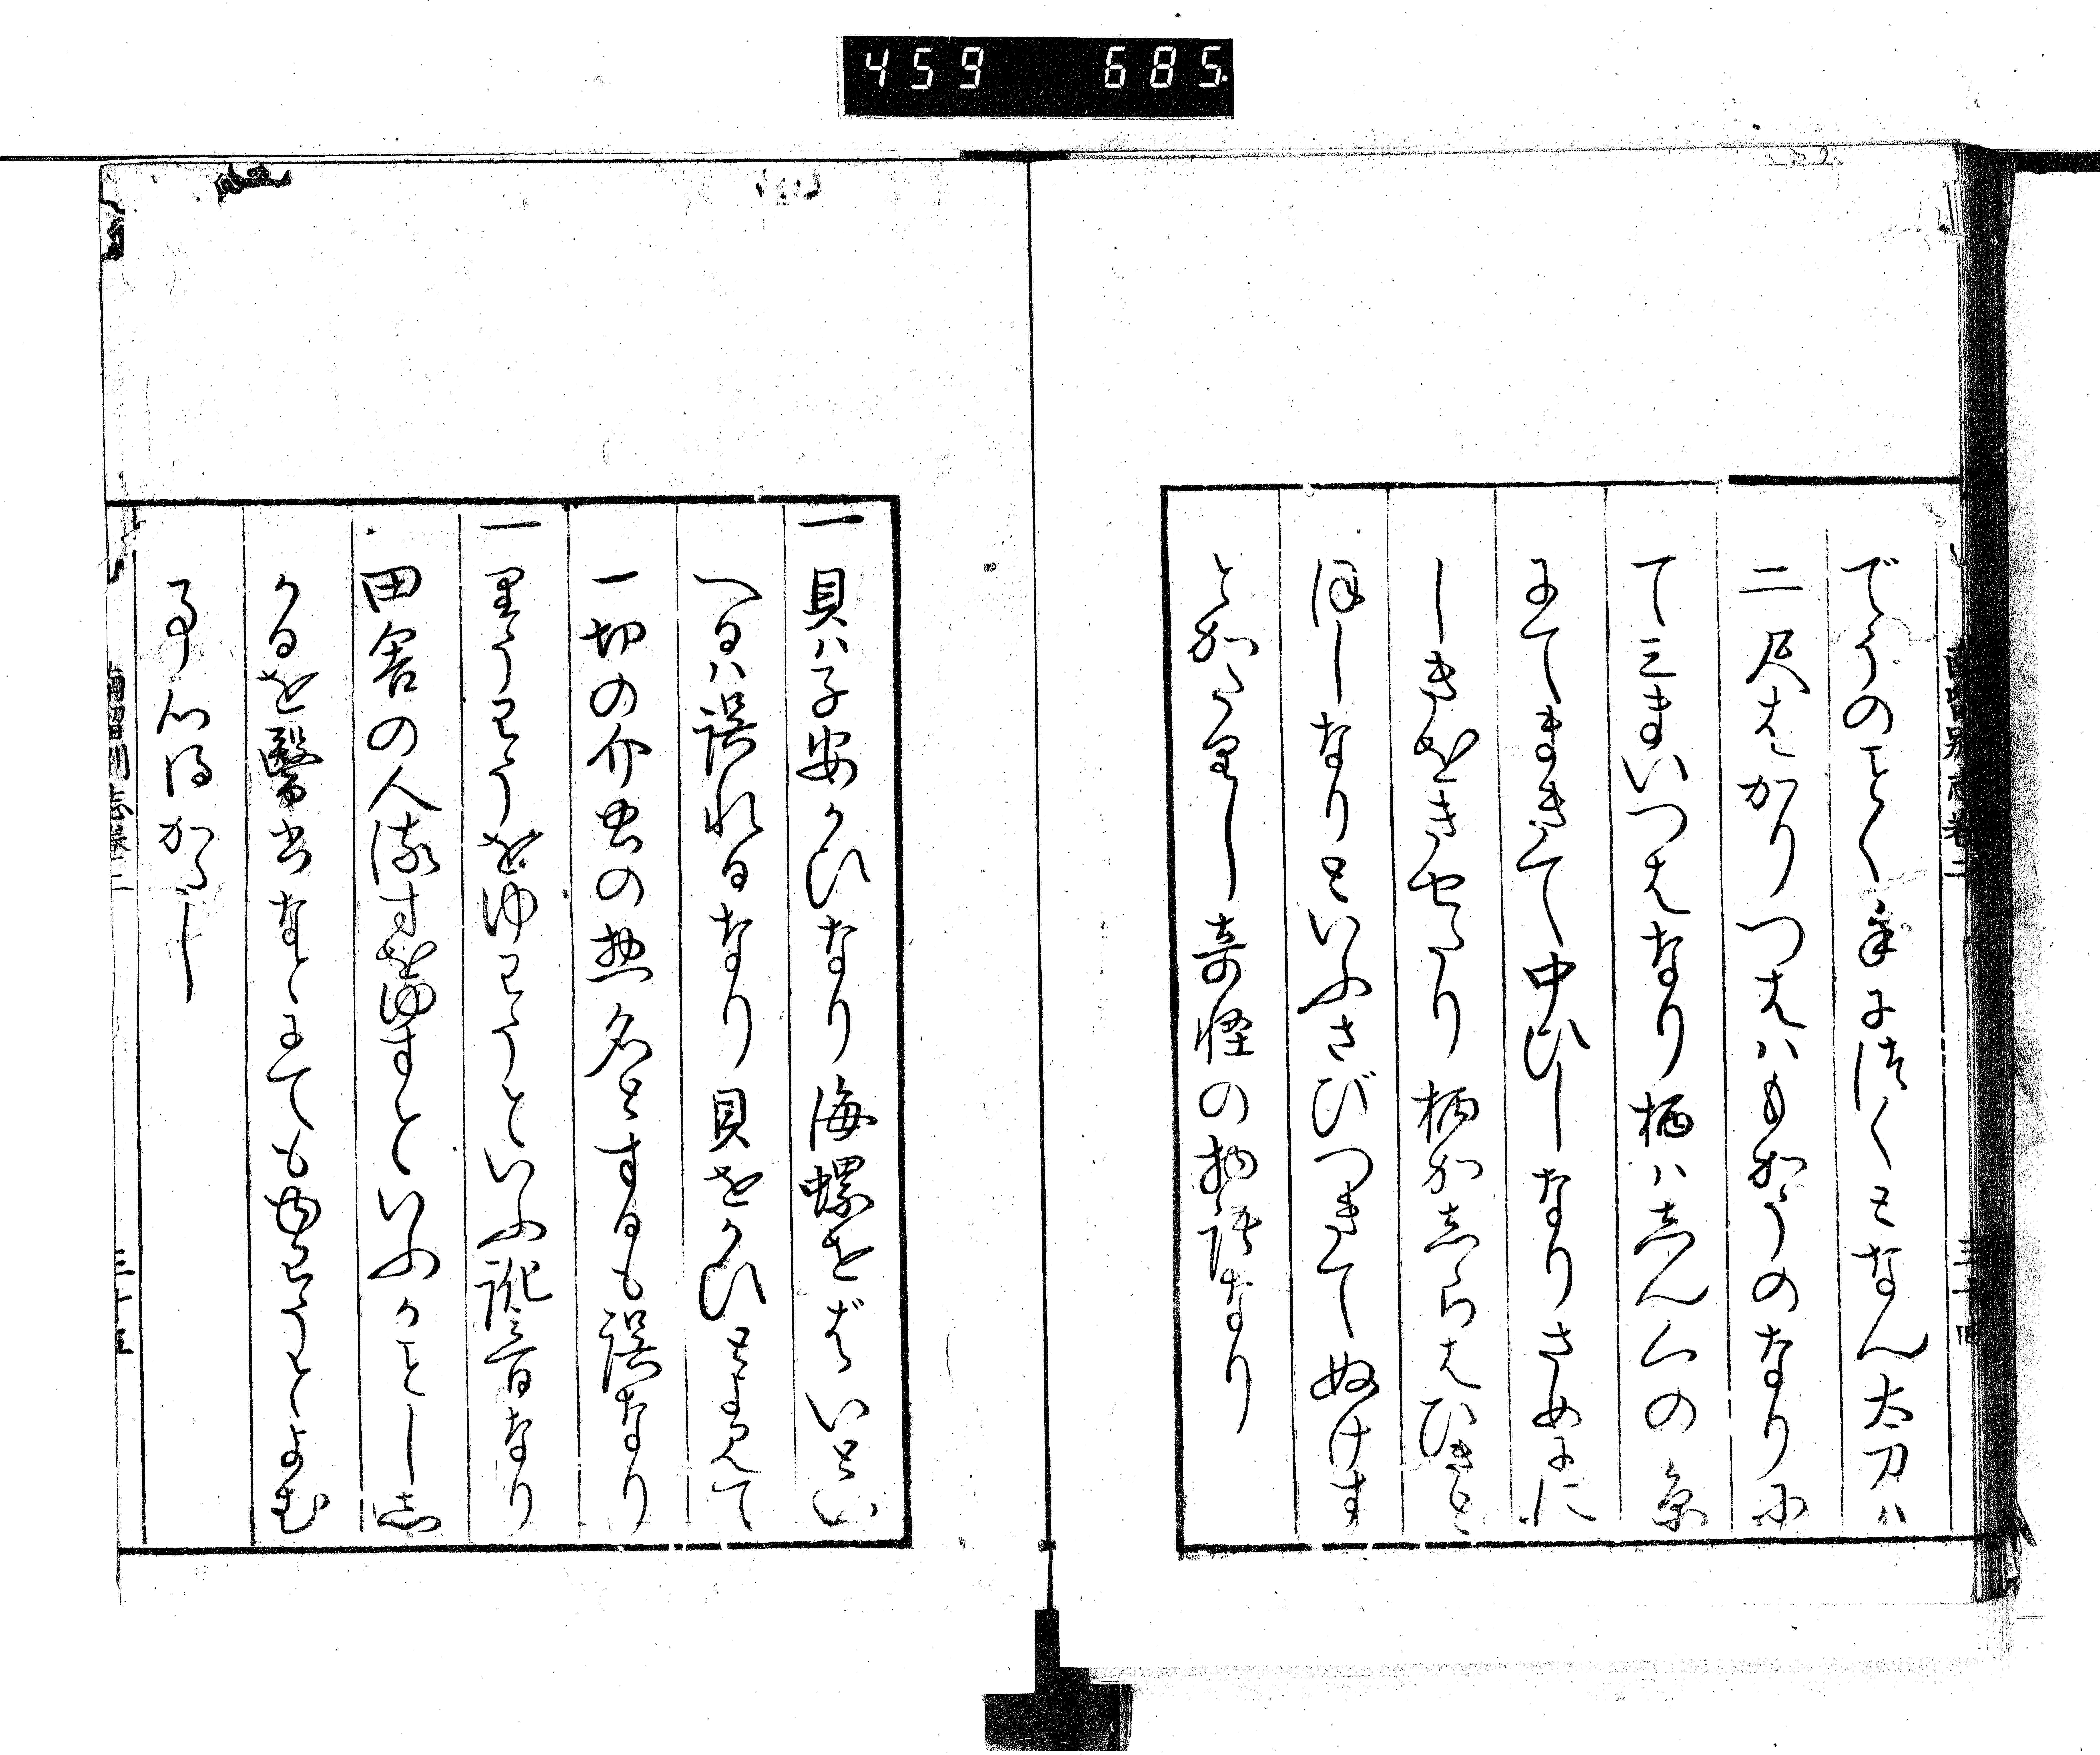 459 685.
でうのことく手に得くとなん太刀ハ
二尺はかりつばハもかうのなりに
て三まいつばなり柄ハしんくの糸
にてまきて中ひしなりさめに
しきをきせたり柄かしらはひきと
ほしなりといふさびつきてぬけす
とかたりし奇怪の物語なり
三十四
一貝ハ子安かひなり海螺をばいとい
へるハ誤れるなり貝をかひとよみて
一切の介虫の惣名とするも誤なり
一里うりうをゆりうといふ訛音なり
田舎の人流すをゆすといふかことし
かるを醫書なとにてもゆりうとよむ
事心得かたし